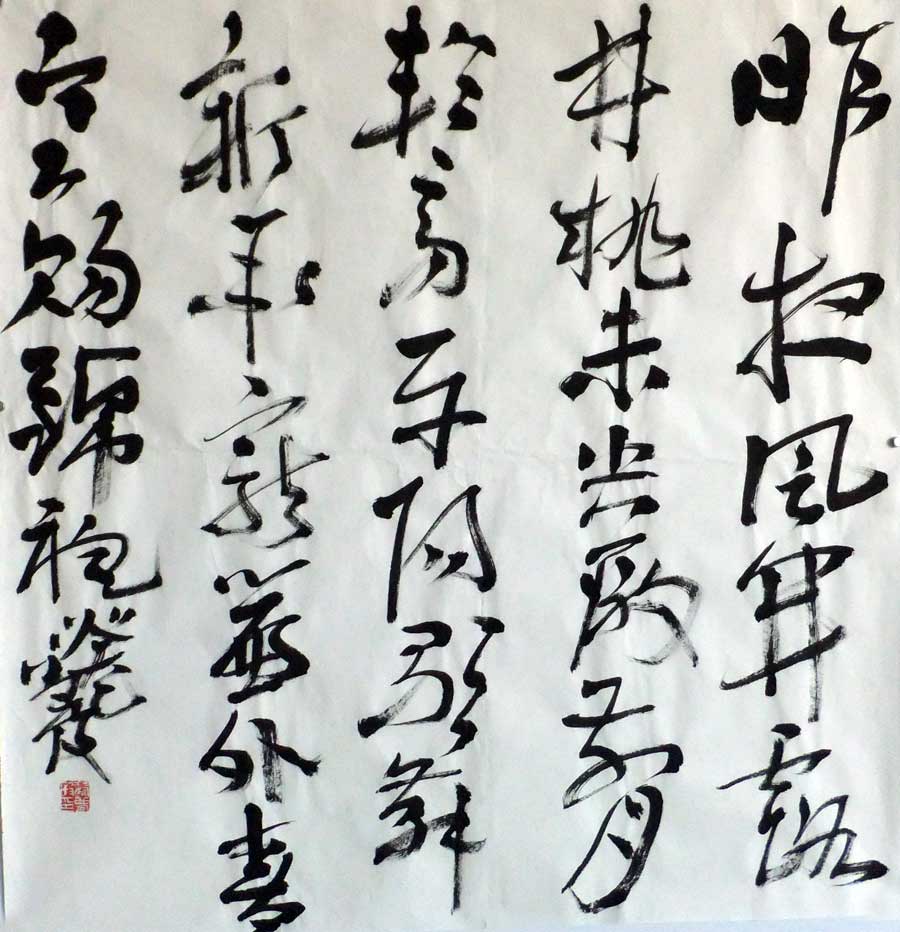 昨夜風開露
井桃未央殿前月
輪高平陽歌舞
新承寵簾外春
寒賜錦袍